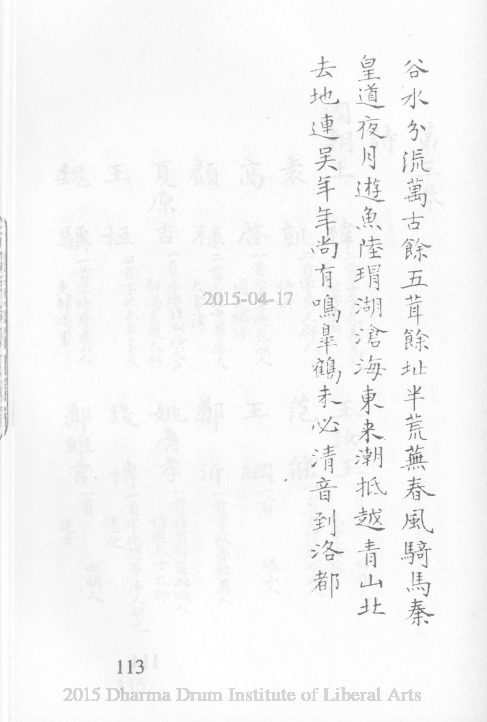 谷水分流萬古餘五茸餘址半荒蕪春風騎馬秦
皇道夜月遊魚陸瑁湖滄海東来潮抵越青山北
去地連吴年年尚有鳴臯鶴未必清音到洛都
2015-04-17
113
2015 Dharma Drum Institute of Liberal Arts